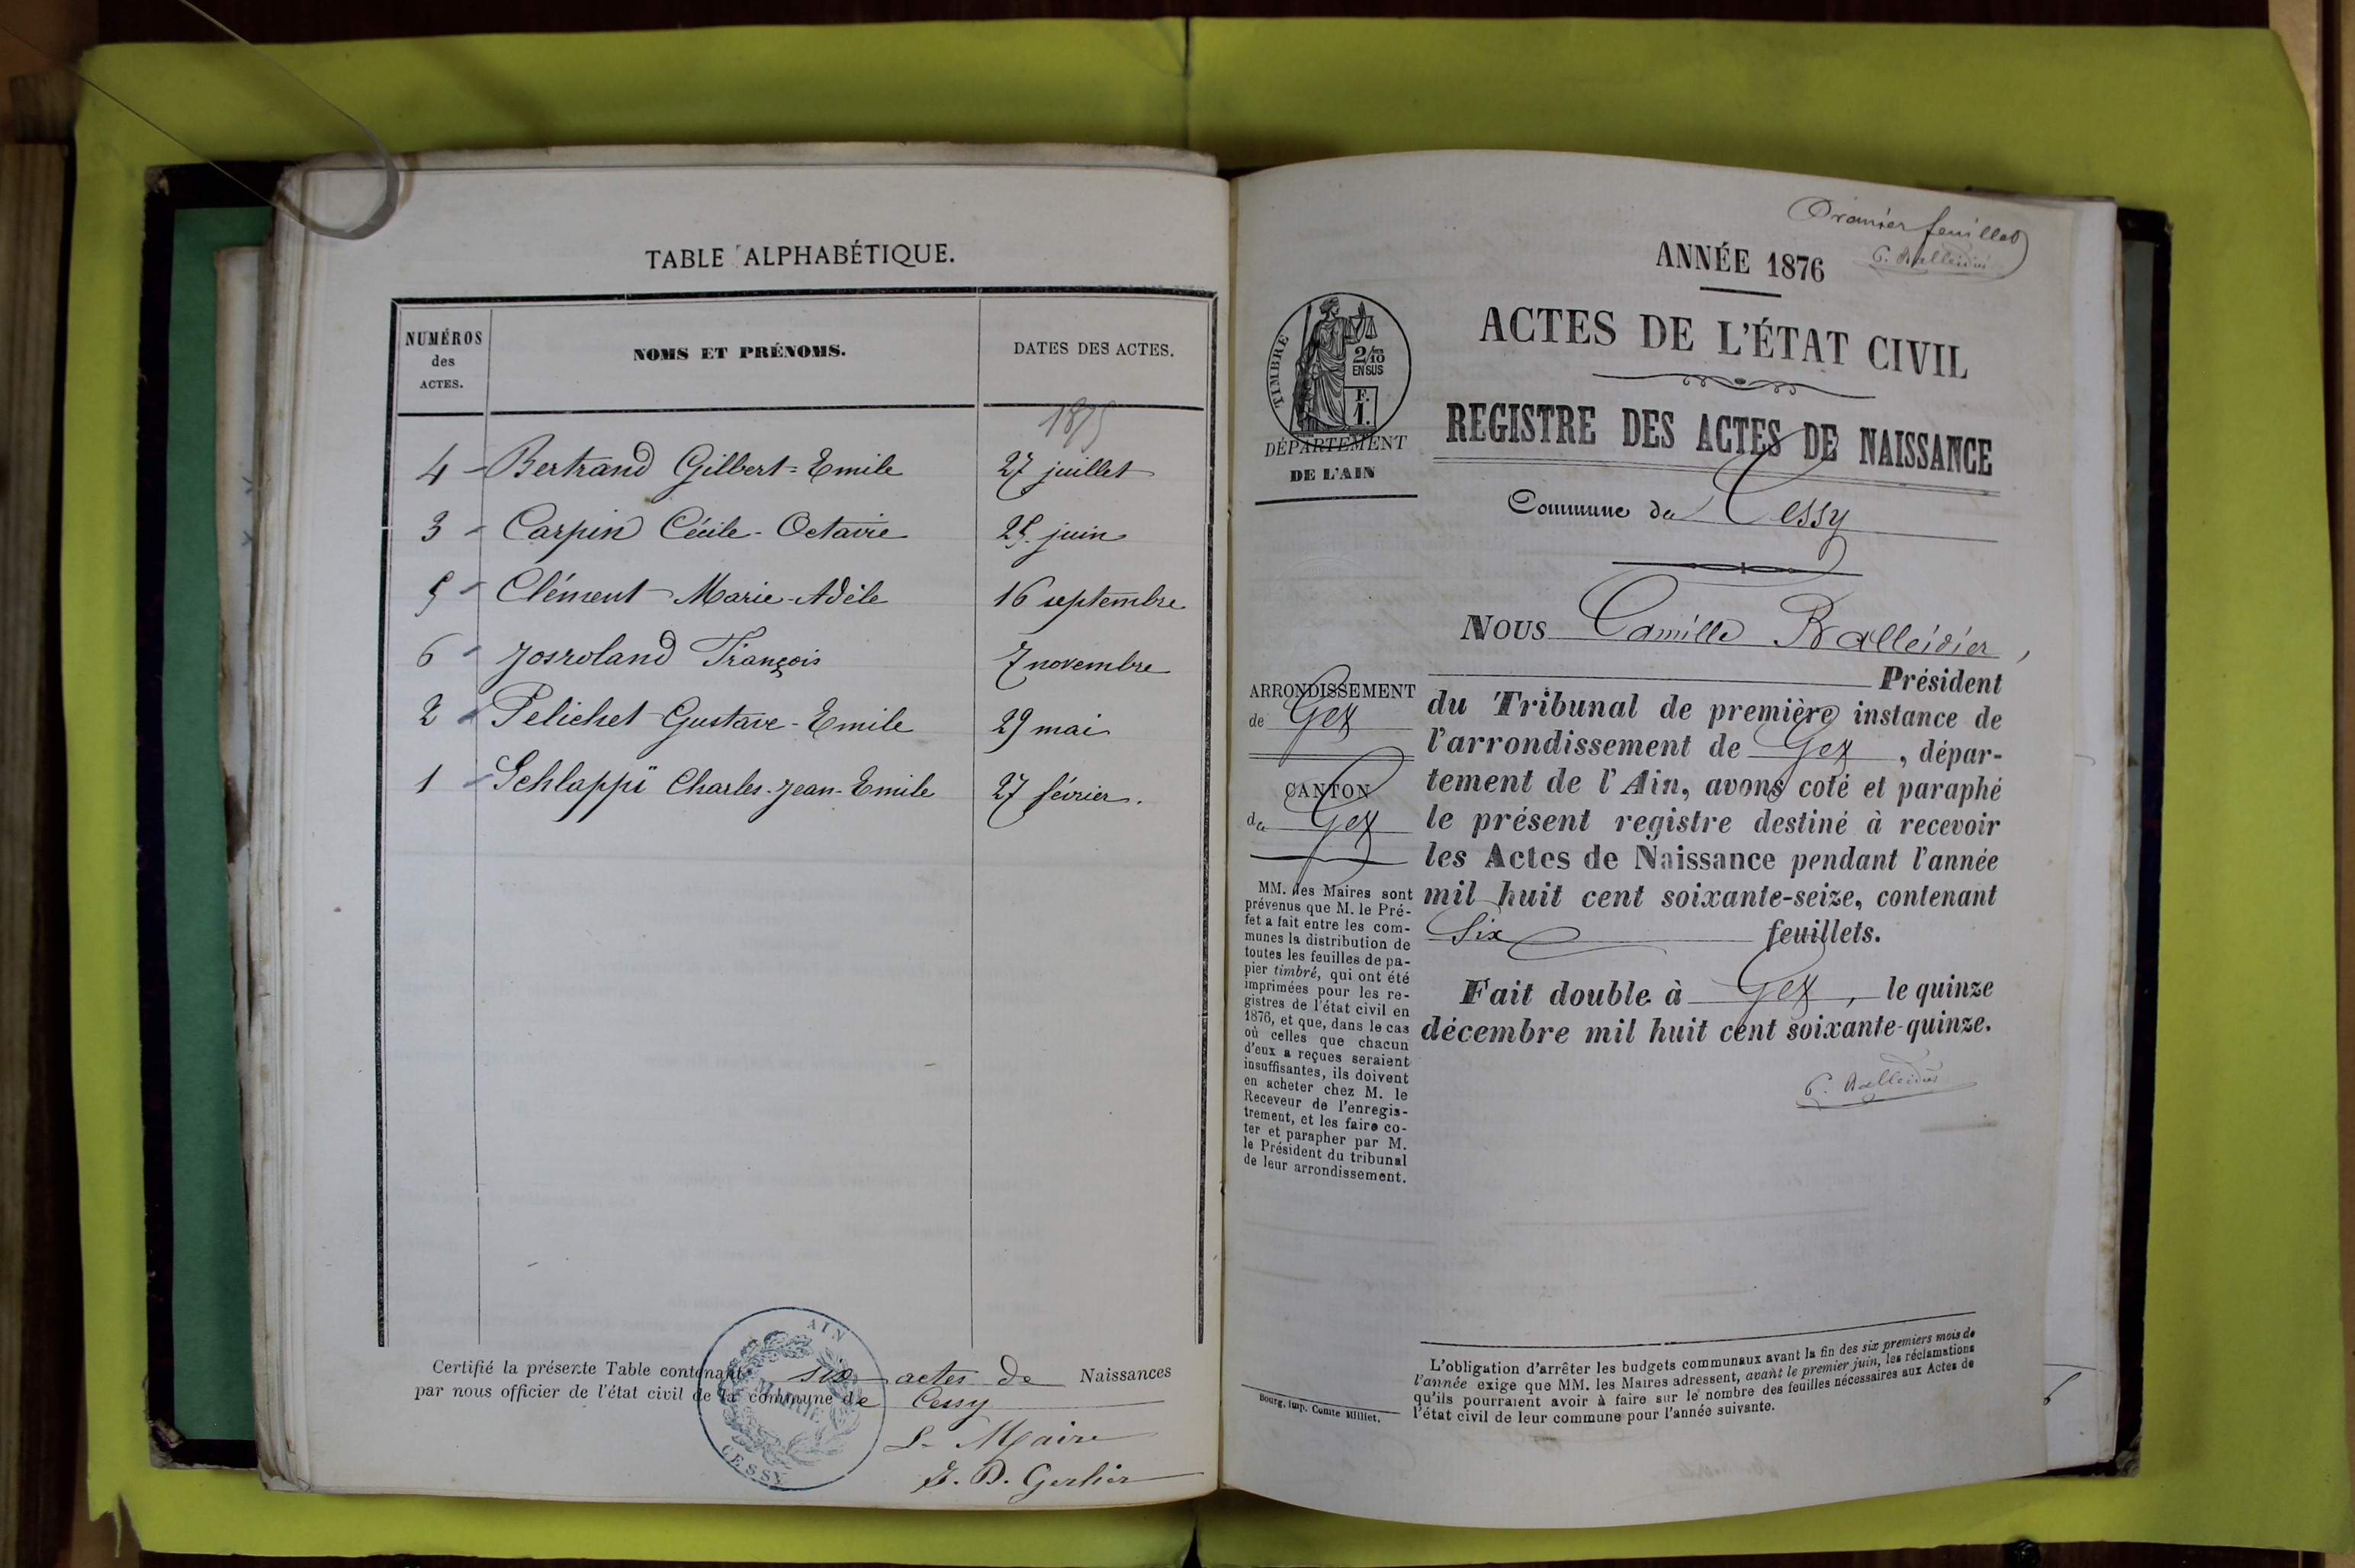 TABLE ALPHABÉTIQUE.
NUMÉROS
des
ACTES.
NOMS ET PRÉNOMS.
DATES DES ACTES.
1875
4 - Bertrand Gilbert=Emile 27 juillet
3 - Carpin Cécile-Octavie 25. juin
5 - Clément Marie-Adèle 16 septembre
6 - Josroland François 7 novembre
2 - Pelichet Gustave-Emile 29 mai
1 - Schlappï Charles-Jean-Emile 27 février.
Certifié la présente Table contenant six actes de Naissances
par nous officier de l'état civil de la commune de Cessy
Le Maire
J. D. Gerlier
AIN
MAIRIE
CESSY
Premier feuillet
C. Balleidier
ANNÉE 1876
ACTES DE L'ÉTAT CIVIL
REGISTRE DES ACTES DE NAISSANCE
Commune de Cessy
TIMBRE
2/10
EN SUS
F.
1.
DÉPARTEMENT
DE L'AIN
NOUS Camille Balleidier,
Président
du Tribunal de première instance de
l'arrondissement de Gex, dépar-
tement de l'Ain, avons coté et paraphé
le présent registre destiné à recevoir
les Actes de Naissance pendant l'année
mil huit cent soixante-seize, contenant
Six feuillets.
Fait double à Gex, le quinze
décembre mil huit cent soixante-quinze.
C. Balleidier
ARRONDISSEMENT
de Gex
CANTON
de Gex
MM. les Maires sont
prévenus que M. le Pré-
fet a fait entre les com-
munes la distribution de
toutes les feuilles de pa-
pier timbré, qui ont été
imprimées pour les re-
gistres de l'état civil en
1876, et que, dans le cas
où celles que chacun
d'eux a reçues seraient
insuffisantes, ils doivent
en acheter chez M. le
Receveur de l'enregis-
trement, et les faire co-
ter et parapher par M.
le Président du tribunal
de leur arrondissement.
L'obligation d'arrêter les budgets communaux avant la fin des six premiers mois de
l'année exige que MM. les Maires adressent, avant le premier juin, les réclamations
qu'ils pourraient avoir à faire sur le nombre des feuilles nécessaires aux Actes de
l'état civil de leur commune pour l'année suivante.
Bourg, imp. Comte Milliet.